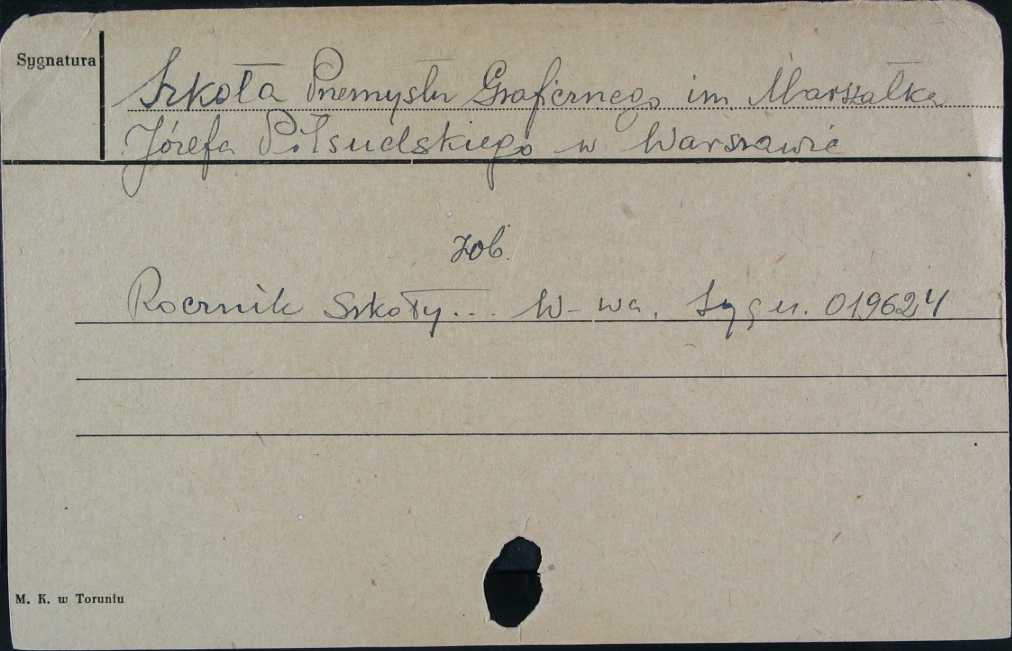 Sygnatura
Szkoła Przemysłu Graficznego im. Marszałka
Józefa Piłsudskiego w Warszawie
zob.
Rocznik Szkoły... W-wa. Sygn. 019624
M. K. w Toruniu